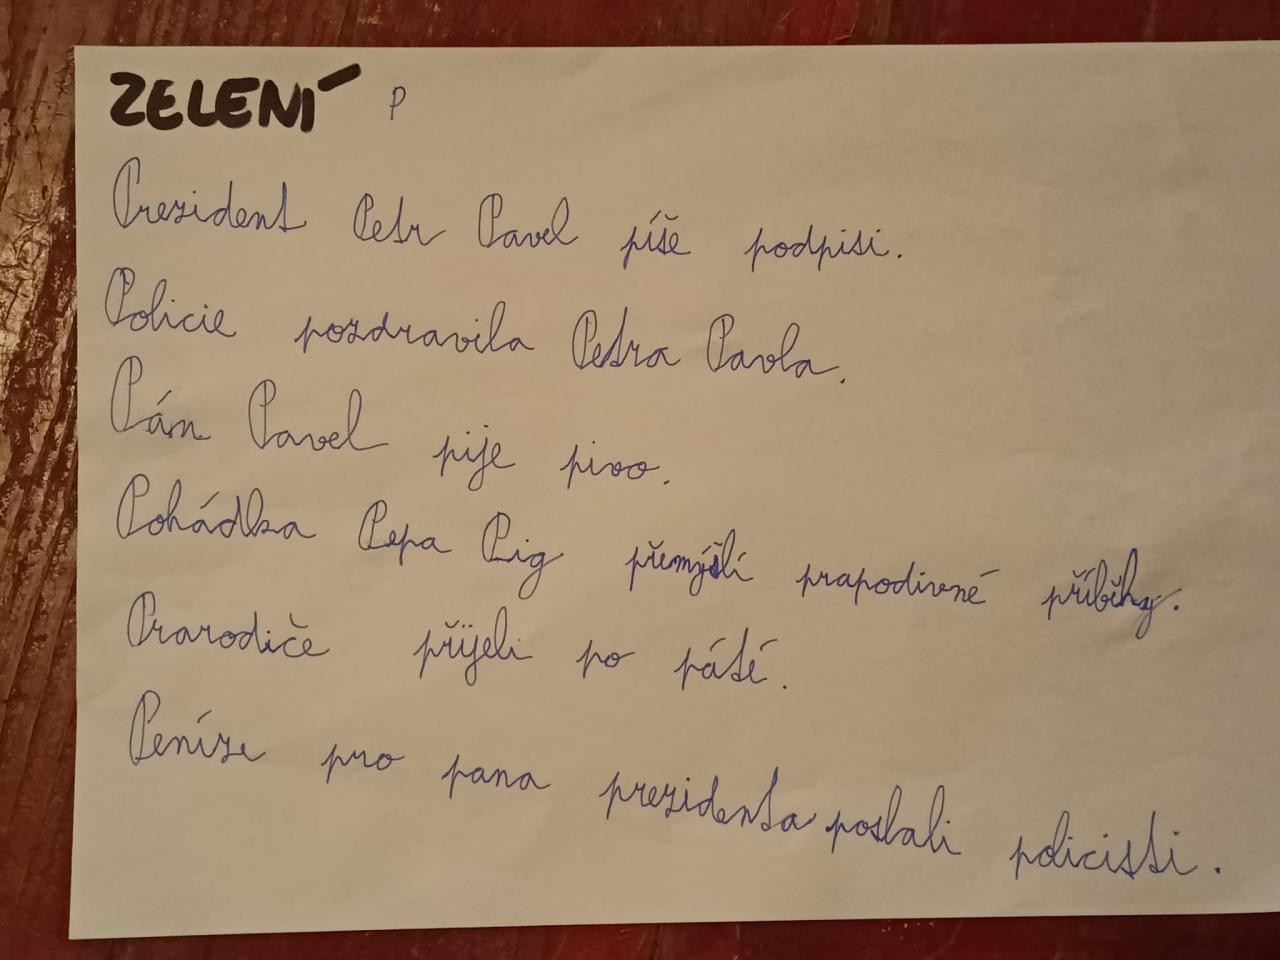 ZELENÍ P
Prezident Petr Pavel píše podpisi.
Policie pozdravila Petra Pavla.
Pán Pavel pije pivo.
Pohádka Pepa Pig přemýšlí prapodivné příběhy.
Prarodiče přijeli po páté.
Peníze pro pana prezidenta poslali policisti.